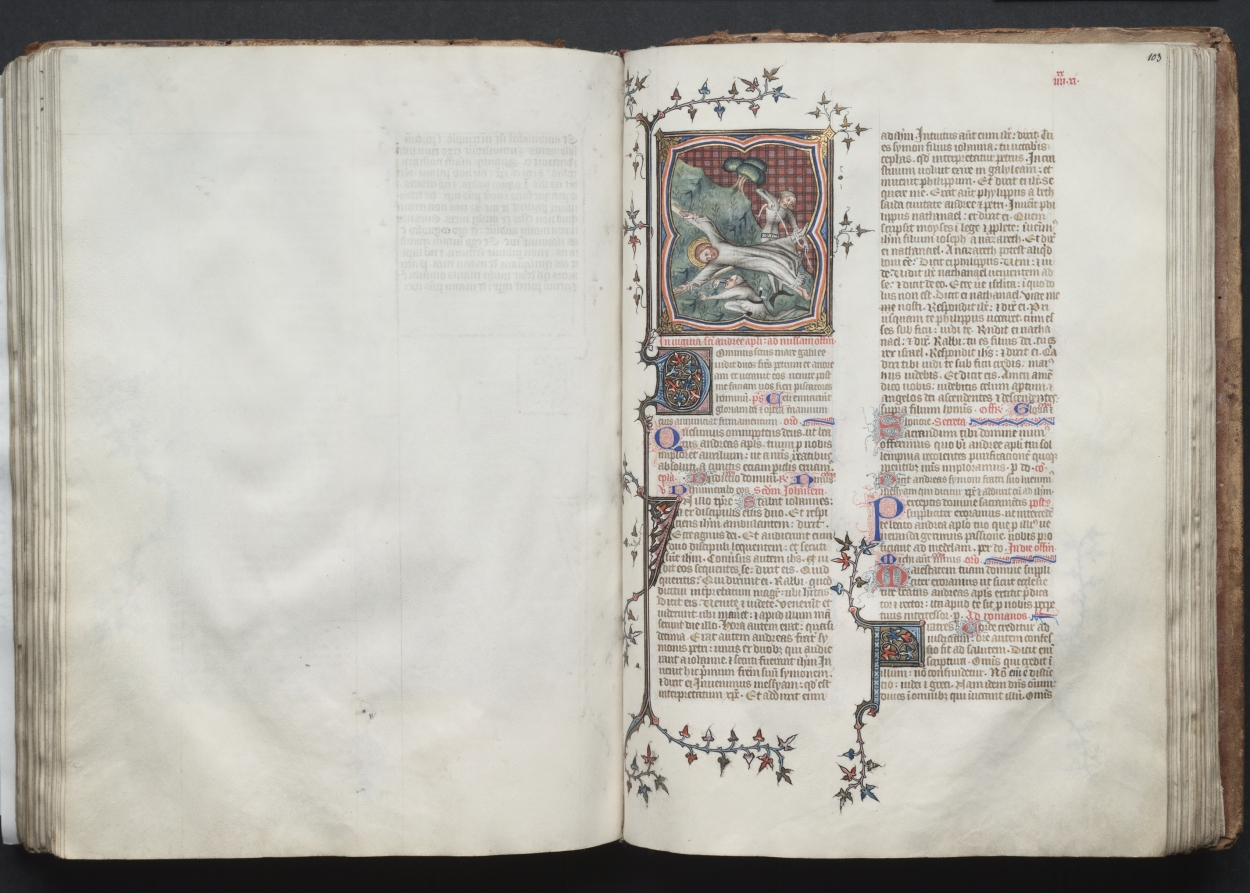 103
iiii.xx xi.
In vigilia sci andree apli. ad missam offm.
Dominus secus mare galilee
vidit duos fres petrum et andre
am et vocavit eos venite post
me faciam vos fieri piscatores
hominum. ps Celi enarrant
gloriam dei et opera manuum
eius annunciat firmamentum. oro
Quesumus omnipotens deus. ut bea
tus andreas apls. tuum p nobis
imploret auxilium. ut a nris reatibus
absoluti. a cunctis etiam piclis eruam.
Scdm Johannem.
In illo tpre. Stabat iohannes.
et ex discipulis eius duo. Et respi
ciens ihm ambulantem. dixit.
Ecce agnus dei. Et audierunt eum
duo discipuli loquentem. et secuti
sunt ihm. Conversus autem ihs. et vi
dit eos sequentes se. dixit eis. Quid
queritis. Qui dixerunt ei. Rabbi. quod
dicitur interpretatum magr. ubi habitas.
Dicit eis. Venite et videte. Venerunt et
viderunt ubi maneret. et apud illum man
serunt die illo. Hora autem erat. quasi
decima. Erat autem andreas frater sy
monis petri. unus ex duobz qui audie
rant a iohanne. et secuti fuerant ihm. In
venit hic primum frem suum symonem.
et dixit ei. Invenimus messyam. qd est
interpretatum xps. Et adduxit eum
ad ihm. Intuitus aut eum ihs. dixit. Tu
es symon filius iohanna. tu vocabis
cephas. qd interpretatur petrus. In cras
tinum voluit exire in galyleam. et
invenit philippum. Et dixit ei ihs. Se
quere me. Erat aut phylippus a beth
saida civitate andree et petri. Invenit phi
lippus nathanael. et dixit ei. Quem
scripsit moyses i lege et pphete. inveni
mus ihm filium ioseph a nazareth. Et dix
ei nathanael. A nazareth potest aliqd
boni ee. Dicit ei philippus. Veni. et vi
de. Vidit ihs nathanael venientem ad
se. et dicit de eo. Ecce vere isrlita. i quo do
lus non est. Dicit ei nathanael. Unde me
me nosti. Respondit ihs. et dix ei. Pri
usquam te philippus vocaret. cum es
ses sub ficu. vidi te. Rndit ei natha
nael. et dix. Rabbi. tu es filius dei. tu es
rex israel. Respondit ihs. et dixit ei. Qa
dixi tibi vidi te sub ficu credis. mai
nus videbis. Et dicit eis. Amen amen
dico vobis. videbitis celum aptum. et
angelos dei ascendentes et descendentes
supra filium homis. Offr. Gloria et
honore. Secreta.
Sacrandum tibi domine mun
offerimus. quo bti andree apli tui sol
lempnia recolentes purificationem quoqz
mentibz nris imploramus. p. do. co.
Dicit andreas symoni fratri suo invenim
messyam qui dicitur xps et adduxit eu ad ihm.
Perceptis domine sacramentis post
suppliciter exoramus. ut intercede
te beato andrea aplo tuo que p illius ve
neranda gerimus passione. nobis pro
ficiant ad medelam. per do. In die offm.
Michi aut nimis oro
Maiestatem tuam domine suppli
citer exoramus ut sicut ecclesie
tue beatus andreas apls extitit pdica
tor et rector. ita apud te sit p nobis ppe
tuus intercessor. p. Ad romanos.
Fratres. Corde creditur ad
iusticiam. ore autem confes
sio fit ad salutem. Dicit eni
scriptura. Omis qui credit i
illum. no confundetur. No eni e distic
tio. iudei et greci. Nam idem dns oium.
dives i omnibz qui invocant illu. Omis